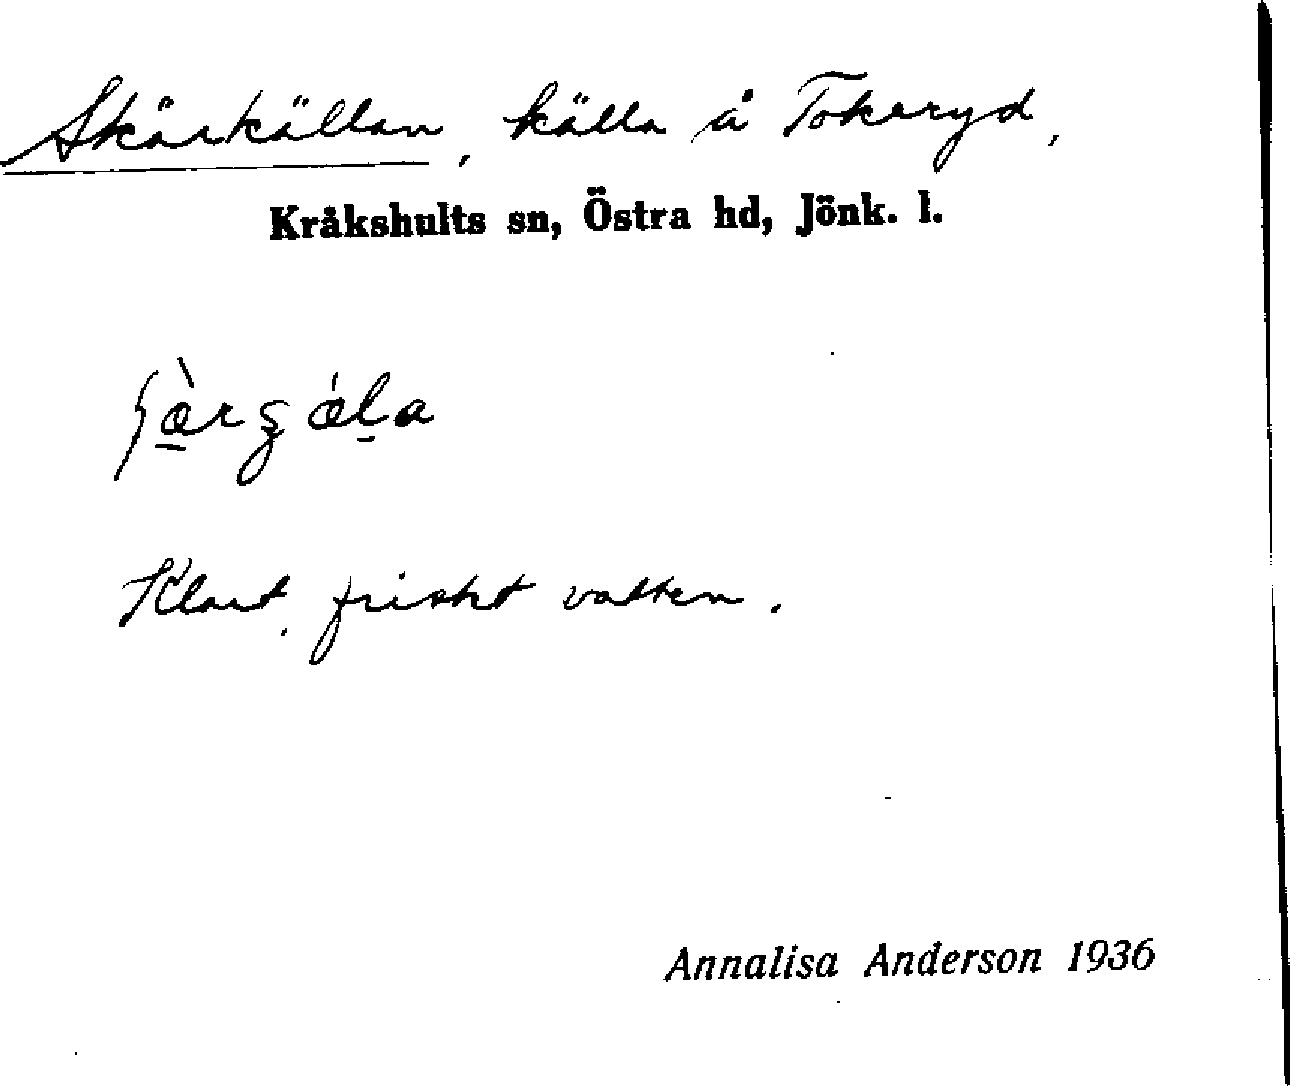 Skärkällan, källa å Tokaryd,
Kråkshults sn, Östra hd, Jönk. l.
Klart, friskt vatten.
Annalisa Anderson 1936